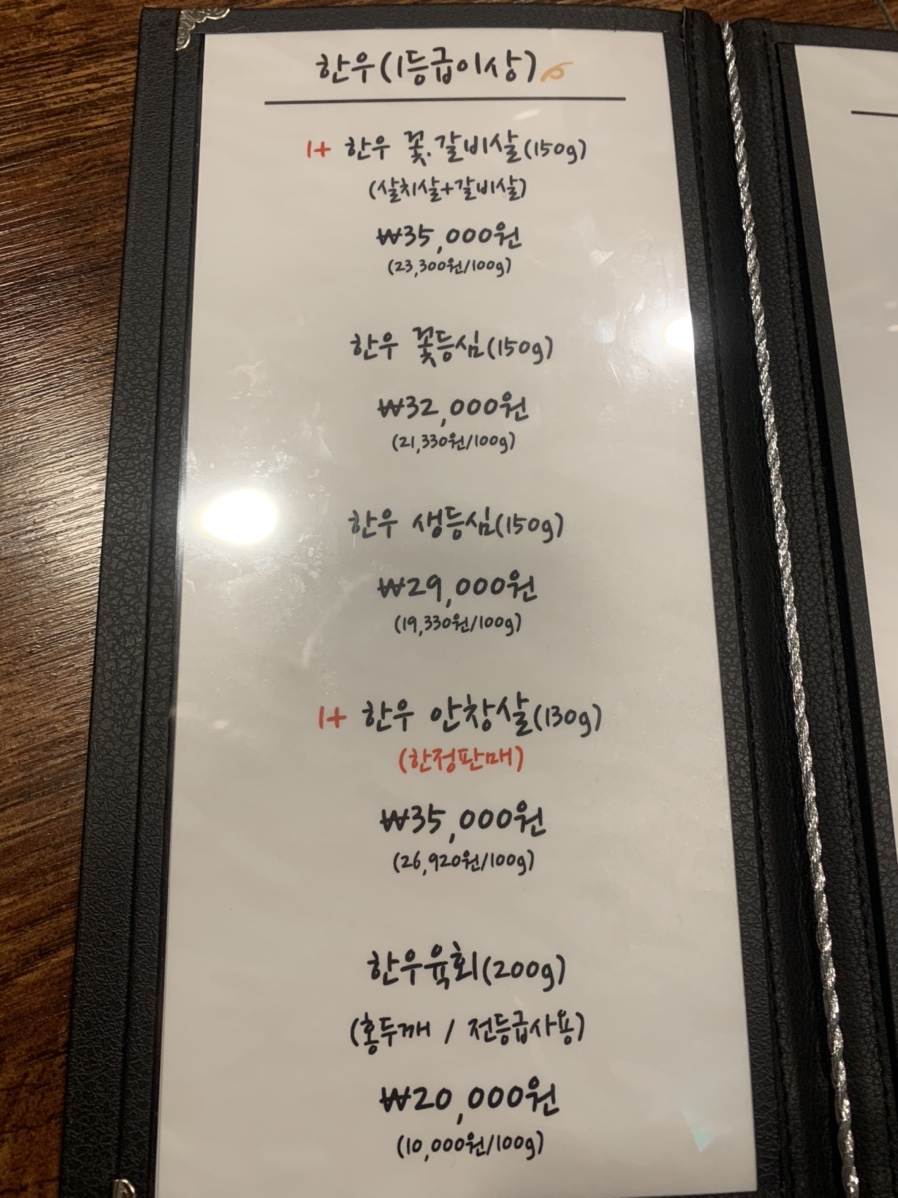 한우(1등급이상)
1+ 한우 꽃.갈비살(150g)
(살치살+갈비살)
₩35,000원
(23,300원/100g)
한우 꽃등심(150g)
₩32,000원
(21,330원/100g)
한우 생등심(150g)
₩29,000원
(19,330원/100g)
1+ 한우 안창살(130g)
(한정판매)
₩35,000원
(26,920원/100g)
한우육회(200g)
(홍두깨 / 전등급사용)
₩20,000원
(10,000원/100g)